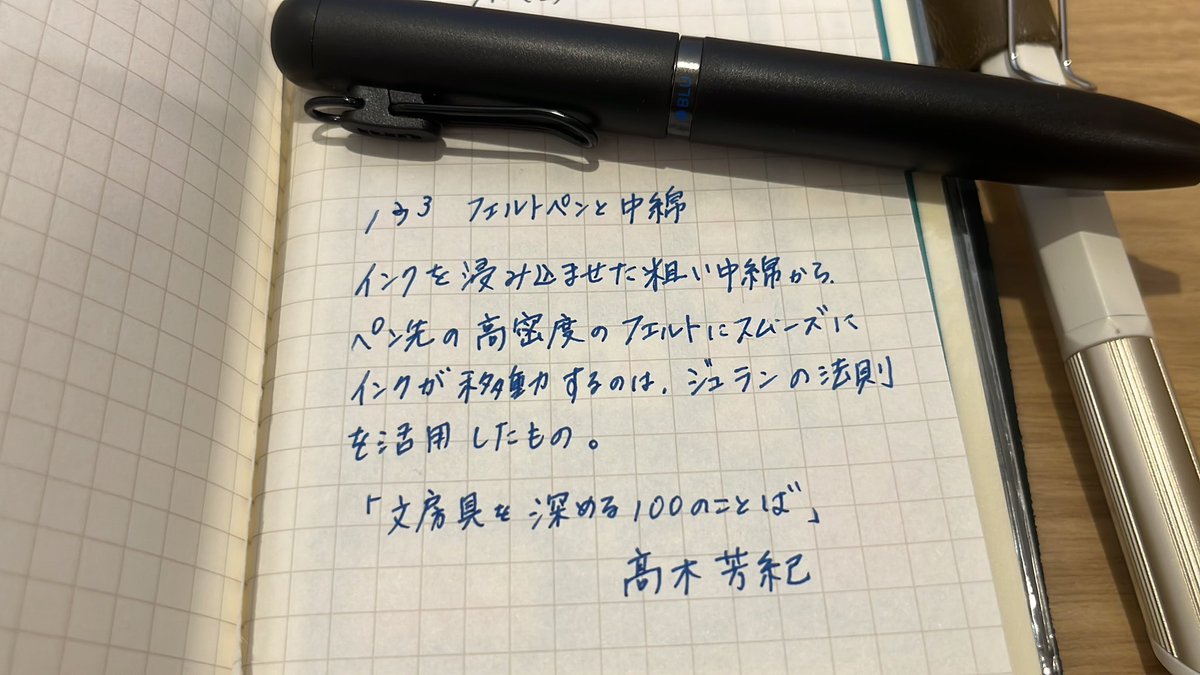 BLU
133 フェルトペンと中綿
インクを浸み込ませた粗い中綿から、
ペン先の高密度のフェルトにスムーズに
インクが移動するのは、ジュランの法則
を活用したもの。
「文房具を深める100のことば」
高木芳紀